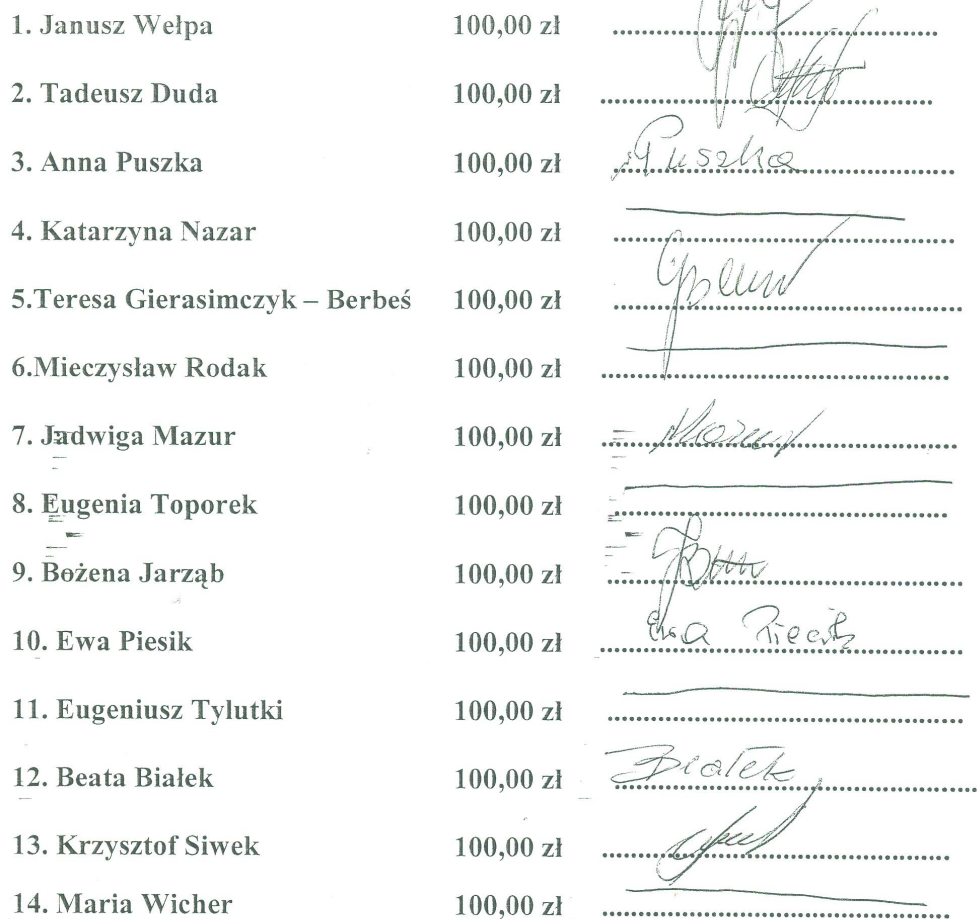 1. Janusz Wełpa 100,00 zł ....................
2. Tadeusz Duda 100,00 zł ....................
3. Anna Puszka 100,00 zł Puszka
4. Katarzyna Nazar 100,00 zł ....................
5.Teresa Gierasimczyk – Berbeś 100,00 zł ....................
6.Mieczysław Rodak 100,00 zł ....................
7. Jadwiga Mazur 100,00 zł Mazur
8. Eugenia Toporek 100,00 zł ....................
9. Bożena Jarząb 100,00 zł ....................
10. Ewa Piesik 100,00 zł Ewa Piesik
11. Eugeniusz Tylutki 100,00 zł ....................
12. Beata Białek 100,00 zł Białek
13. Krzysztof Siwek 100,00 zł ....................
14. Maria Wicher 100,00 zł ....................